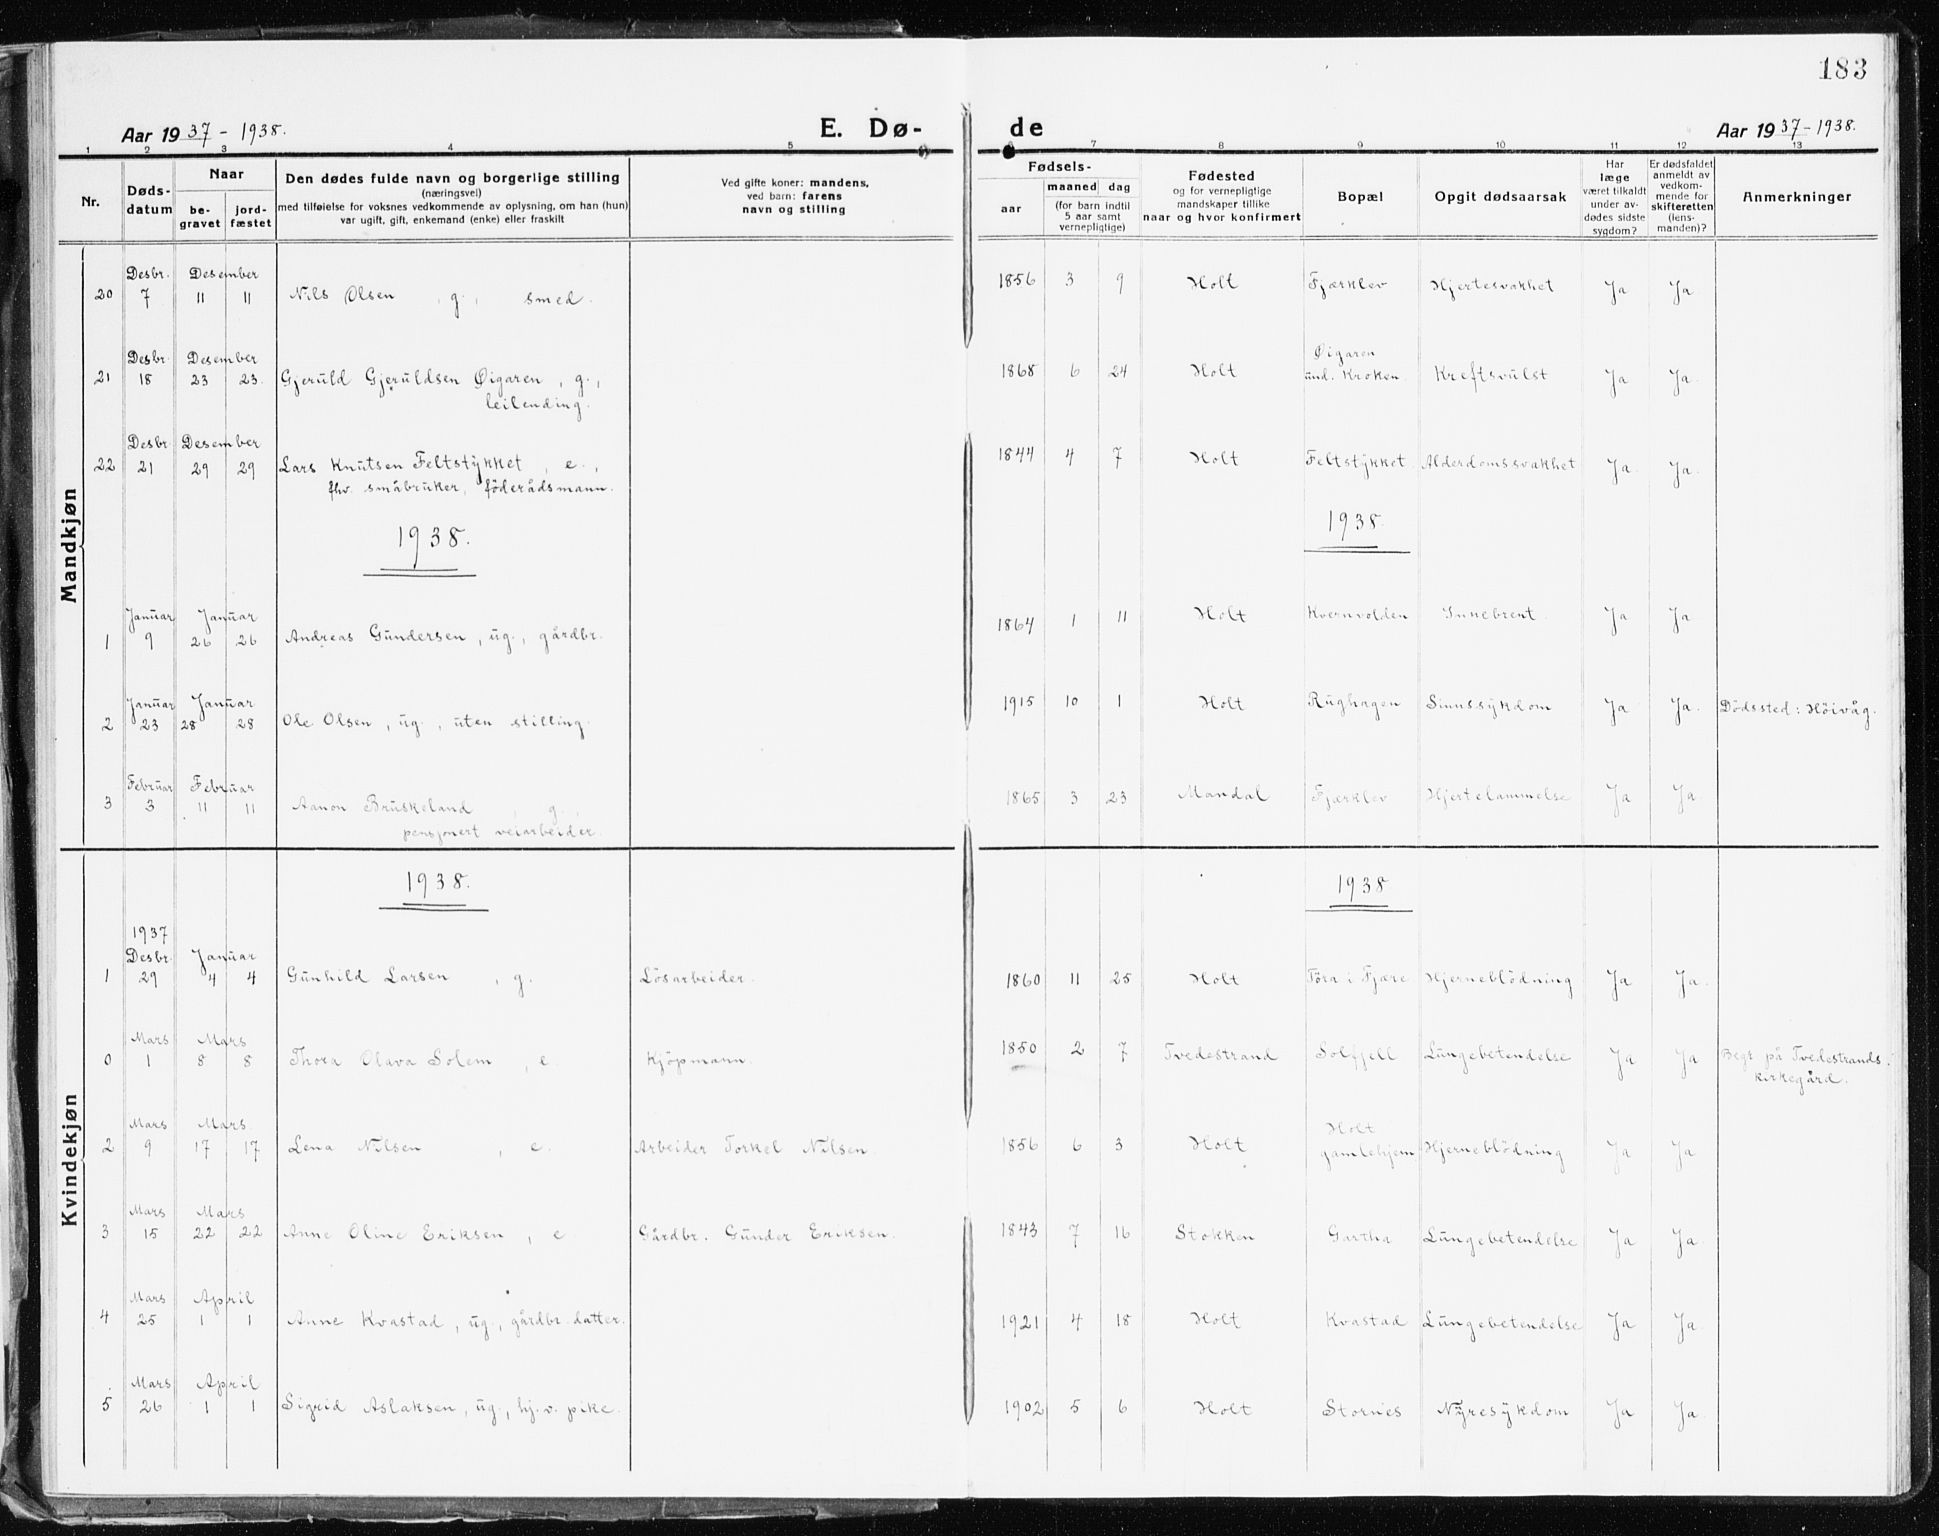 183
Aar 1937-1938.
E. Dø-
de
Aar 1937-1938.
1 2 3 4 5 6 7 8 9 10 11 12 13
Nr.
Døds-
datum
Naar
be-
gravet
jord-
fæstet
Den dødes fulde navn og borgerlige stilling
(næringsvei)
med tilføielse for voksnes vedkommende av oplysning, om han (hun)
var ugift, gift, enkemand (enke) eller fraskilt
Ved gifte koner: mandens,
ved barn: farens
navn og stilling
Fødsels-
aar
maaned
dag
(for barn indtil
5 aar samt
vernepligtige)
Fødested
og for vernepligtige
mandskaper tillike
naar og hvor konfirmert
Bopæl
Opgit dødsaarsak
Har
læge
været tilkaldt
under av-
dødes sidste
sygdom?
Er dødsfaldet
anmeldt av
vedkom-
mende for
skifteretten
(lens-
manden)?
Anmerkninger
Mandkjøn
Desbr. Desember
20 7 11 11 Nils Olsen , g., smed. 1856 3 9 Holt Fjærklev Hjertesvakhet Ja Ja.
Desbr. Desember Øigaren
21 18 23 23. Gjeruld Gjeruldsen Øigaren, g., 1868 6 24 Holt und. Kroken. Kreftsvulst Ja Ja.
leilending.
Desbr. Desember
22 21 29 29 Lars Knutsen Feltstykket, e., 1844 4 7 Holt Feltstykket. Alderdomssvakhet Ja. Ja.
fhv. småbruker, föderådsmann.
1938. 1938.
Januar Januar
1 9 26 26 Andreas Gundersen, ug., gårdbr. 1864 1 11 Holt Kvernvolden Innebrent. Ja Ja
Januar Januar
2 23 28 28 Ole Olsen, ug., uten stilling. 1915 10 1 Holt Rughagen Sinnssykdom Ja Ja. Dödssted: Höivåg.
Februar Februar
3 3 11 11 Aanon Bruskeland, g., 1865 3 23 Mandal Fjærklev Hjertelammelse Ja Ja.
pensjonert veiarbeider.
Kvindekjøn
1938. 1938
1937
Desbr. Januar
1 29 4 4 Gunhild Larsen , g. Lösarbeider. 1860 11 25 Holt Töra i Fjære Hjerneblödning Ja Ja.
Mars Mars
0 1 8 8 Thora Olava Solem , e. Kjöpmann. 1850 2 7 Tvedestrand Solfjell Lungebetendelse Ja Ja Begr på Tvedestrands
kirkegård.
Mars Mars. Holt
2 9 17 17 Lena Nilsen , e. Arbeider Torkel Nilsen. 1856 6 3 Holt gamlehjem Hjerneblödning Ja Ja
Mars Mars
3 15 22 22 Anne Oline Eriksen, e. Gårdbr. Gunder Eriksen. 1843 7 16 Stokken Gartha Lungebetendelse Ja Ja.
Mars April
4 25 1 1 Anne Kvastad, ug., gårdbr. datter. 1921 4 18 Holt Kvastad Lungebetendelse Ja Ja.
Mars April
5 26 1 1 Sigrid Aslaksen, ug., hj.v. pike. 1902 5 6 Holt Stornes Nyresykdom Ja Ja.